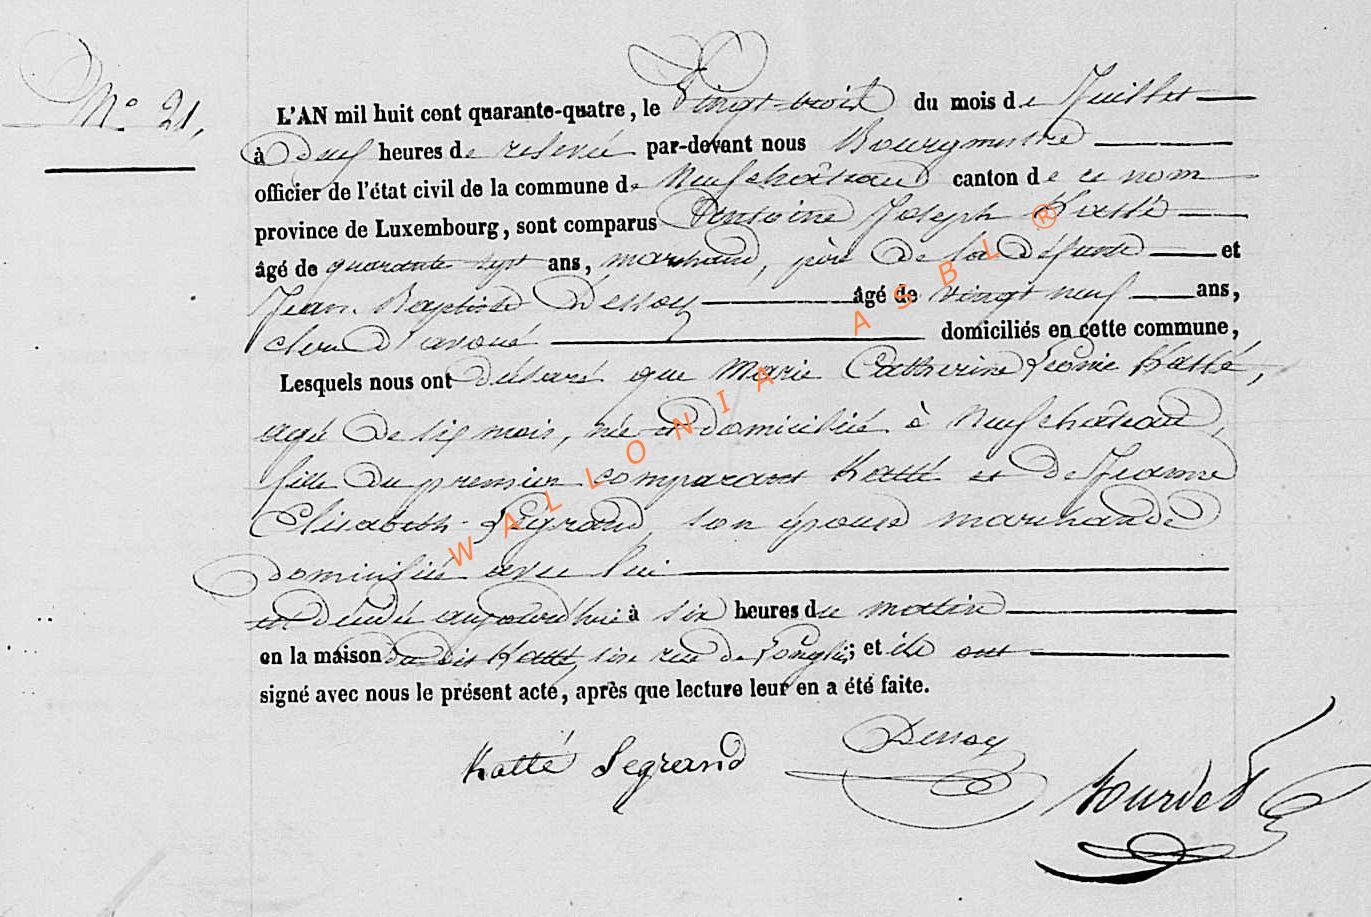 N° 21,
L'AN mil huit cent quarante-quatre, le Vingt trois du mois de Juillet
à deux heures de relevée par-devant nous Bourgmestre
officier de l'état civil de la commune de Neufchâteau canton de ce nom
province de Luxembourg, sont comparus Antoine Joseph Hatté
âgé de quarante sept ans, marchand, père de la défunte et
Jean Baptiste Dessoy âgé de vingt neuf ans,
clerc d'avoué domiciliés en cette commune,
Lesquels nous ont déclaré que Marie Catherine Léonie Hatté,
agée de six mois, née et domiciliée à Neufchâteau,
fille du premier comparant Hatté et de Jeanne
Elisabeth Legrand, son épouse marchande
domiciliée avec lui
est décédée aujourd'hui à six heures du matin
en la maison du dit Hatté, sise rue de Longlier; et ils ont
signé avec nous le présent acte, après que lecture leur en a été faite.
Hatté Legrand Dessoy Hourdet
WALLONIA ASBL ®